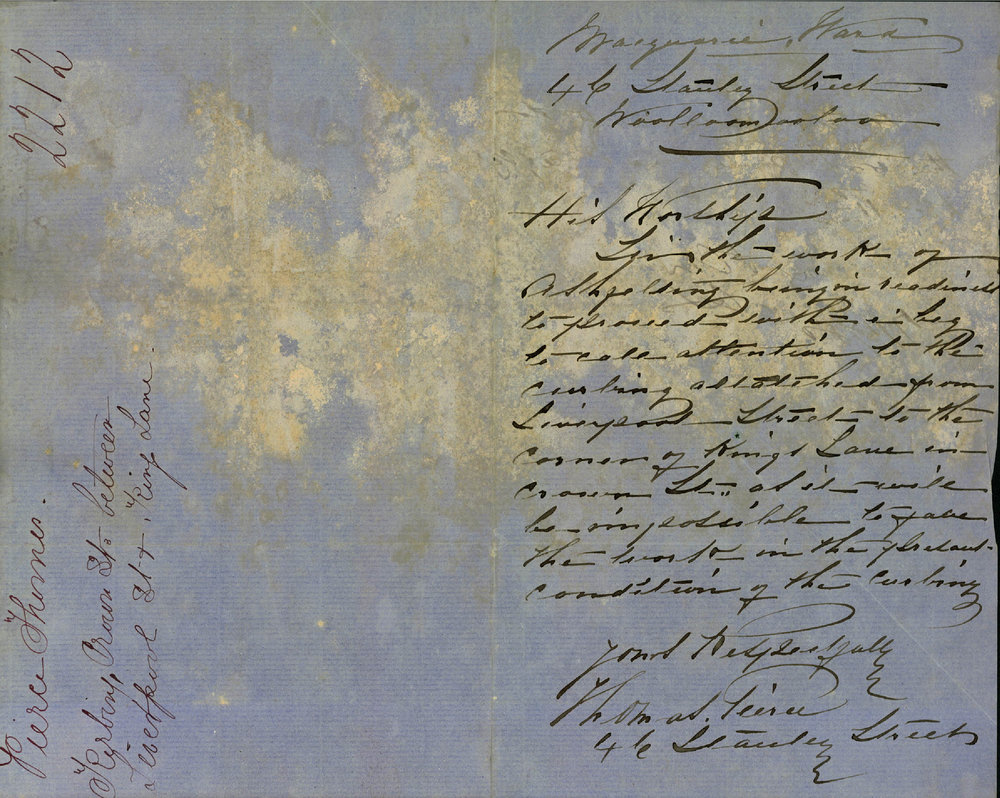 Macquarie Ward
46 Stanley Street
Woolloomooloo
His Worship
Sir the work of
Ashpalting being in readiness
to proceed with i beg
to call attention to the
curbing attatched from
Liverpool Street to the
corner of Kings Lane in
crown St. as it will
be impossible to pave
the work in the present
condition of the Curbing
Yours Respectfully
Thomas. Pierce
46 Stanley Street
2212
Pierce Thomas.
Kerbing, Crown St. between
Liverpool St & King Lane.